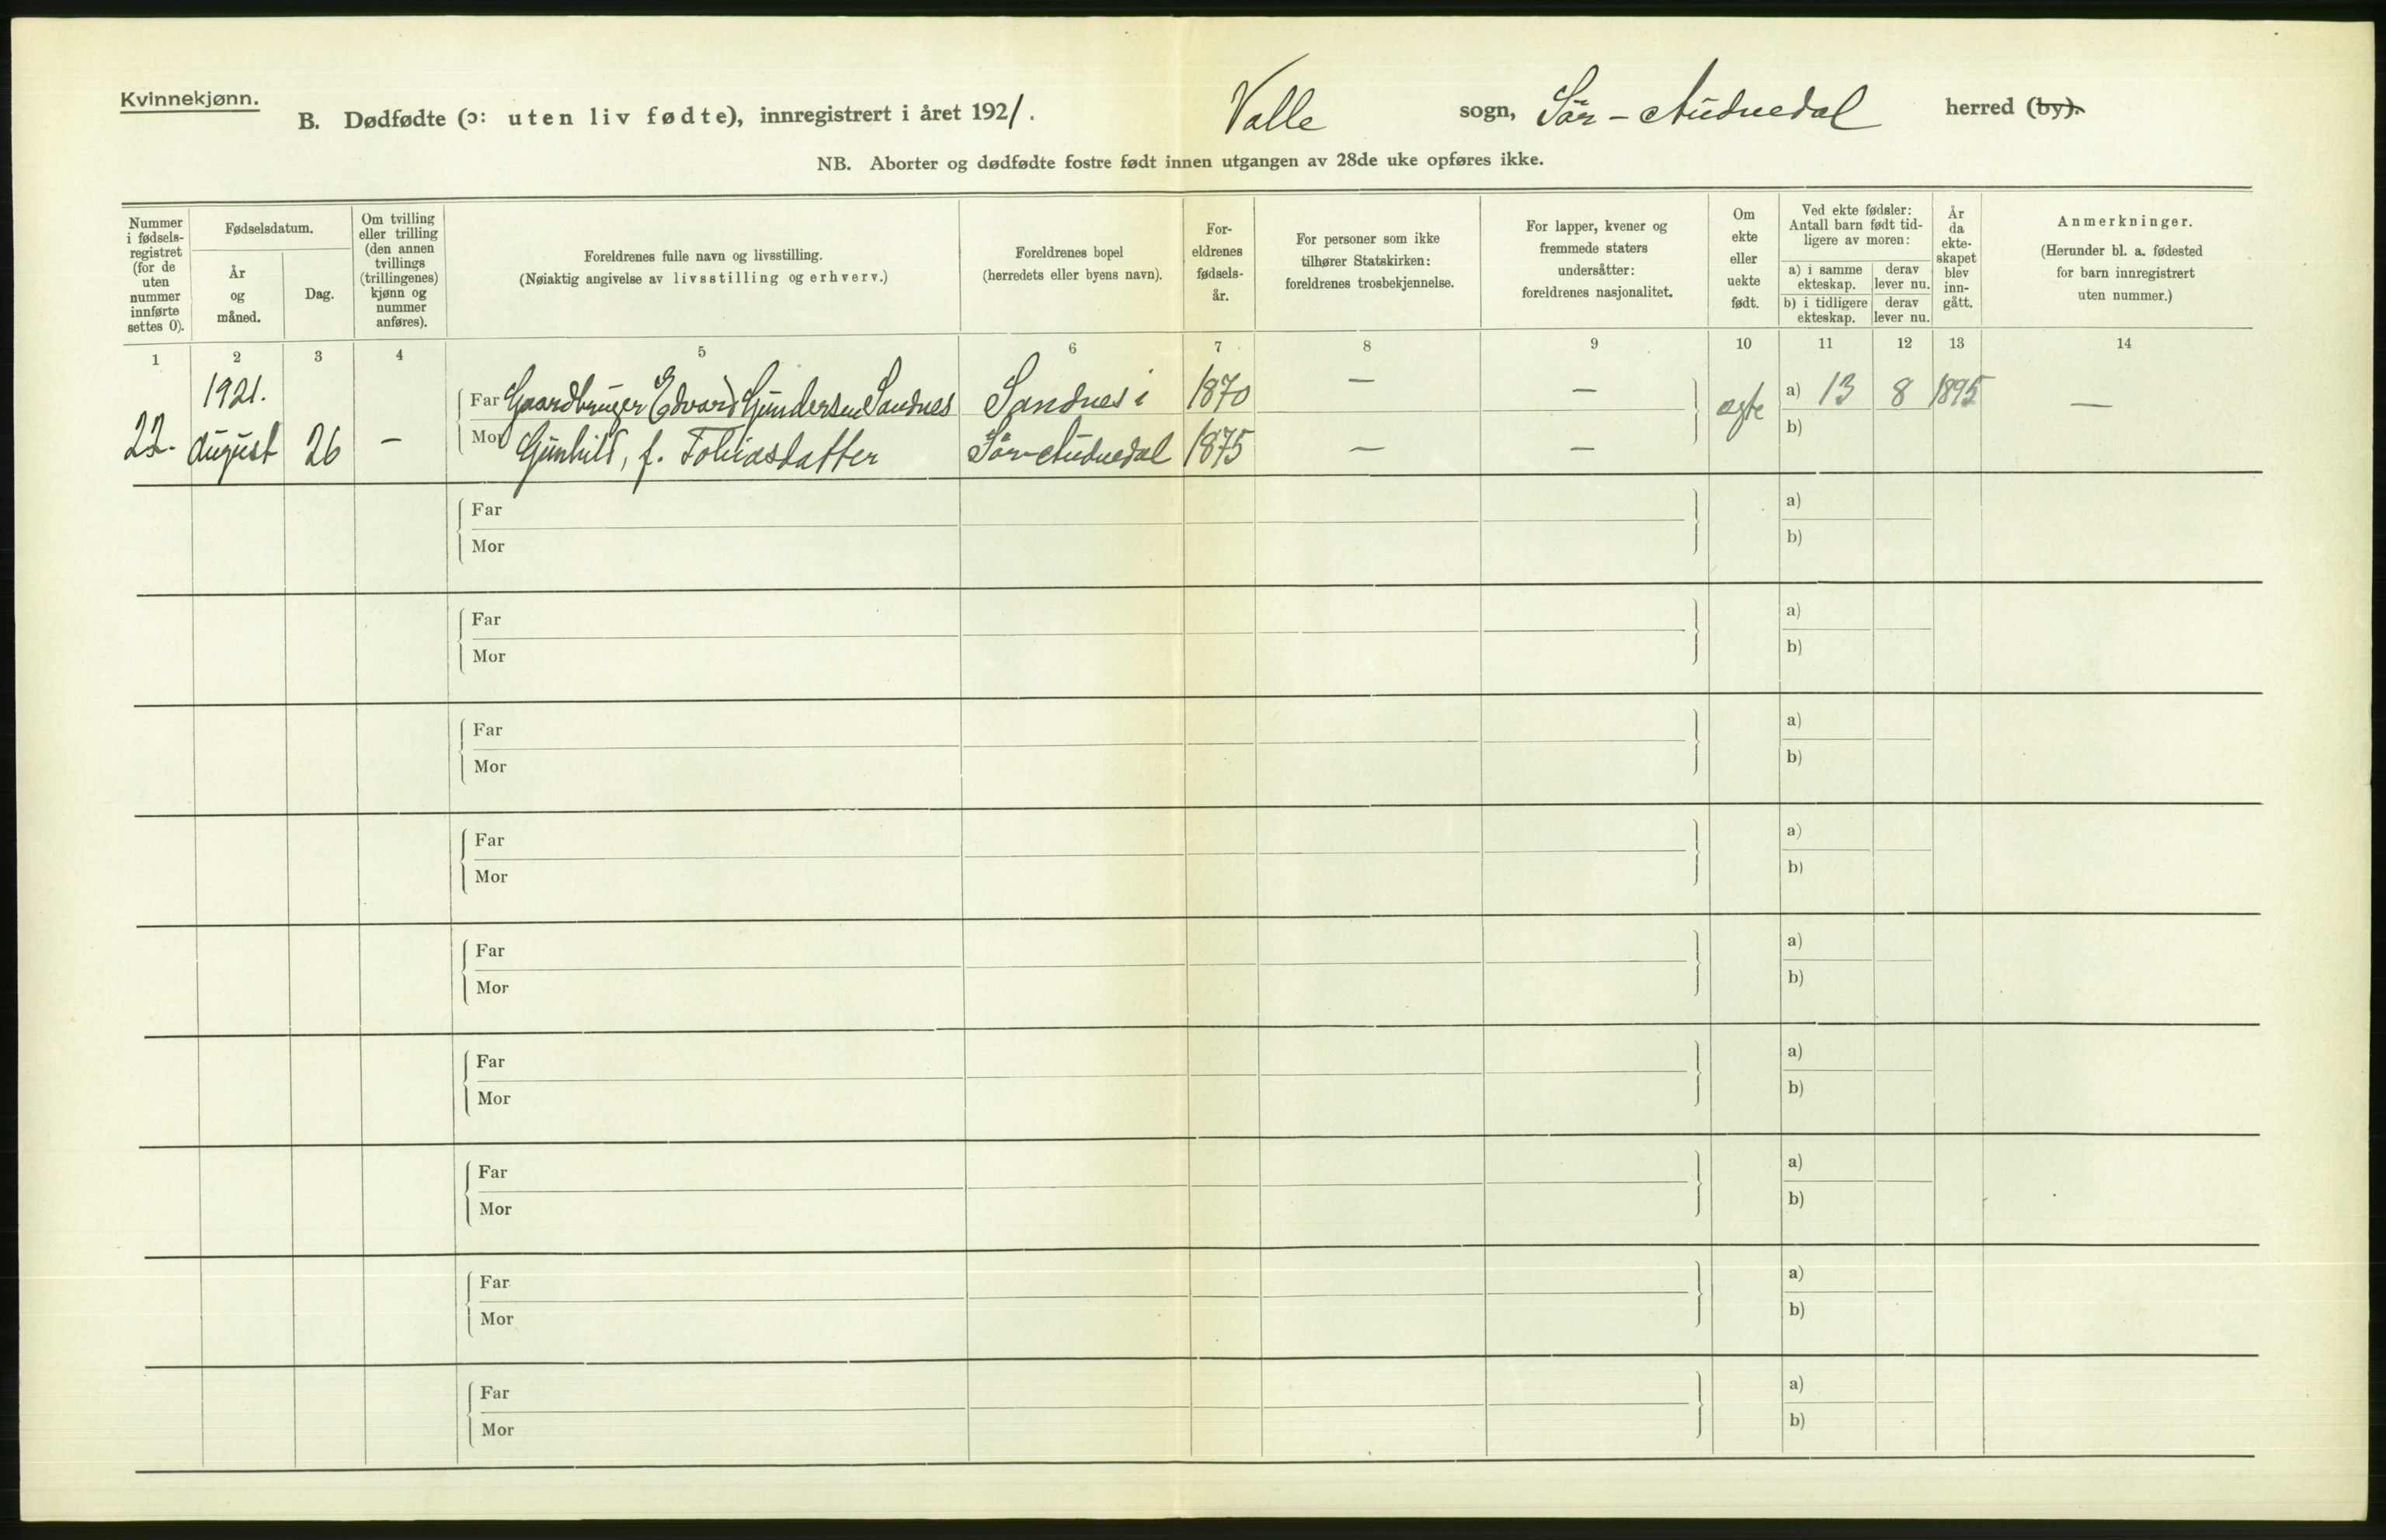 Kvinnekjønn.
B. Dødfødte (ɔ: uten liv fødte), innregistrert i året 1921. Valle sogn, Sör-Audnedal herred (by).
NB. Aborter og dødfødte fostre født innen utgangen av 28de uke opføres ikke.
Nummer i fødsels- registret (for de uten nummer innførte settes 0).
Fødselsdatum.
År og måned.
Dag.
Om tvilling eller trilling (den annen tvillings (trillingenes) kjønn og nummer anføres).
Foreldrenes fulle navn og livsstilling.
(Nøiaktig angivelse av livsstilling og erhverv.)
Foreldrenes bopel
(herredets eller byens navn).
For- eldrenes fødsels- år.
For personer som ikke tilhører Statskirken: foreldrenes trosbekjennelse.
For lapper, kvener og fremmede staters undersåtter: foreldrenes nasjonalitet.
Om ekte eller uekte født.
Ved ekte fødsler: Antall barn født tid- ligere av moren:
a) i samme ekteskap.
derav lever nu.
b) i tidligere ekteskap.
derav lever nu.
År da ekte- skapet blev inn- gått.
Anmerkninger.
(Herunder bl. a. fødested for barn innregistrert uten nummer.)
1 2 3 4 5 6 7 8 9 10 11 12 13 14
1921. Far Gaardbruger Edvard Gundersen Sandnes Sandnes i 1870 — — ægte a) 13 8 1895 —
22. August 26 – Mor Gunhild, f. Tobiasdatter Sör-Audnedal 1875 — — b)
Far a)
Mor b)
Far a)
Mor b)
Far a)
Mor b)
Far a)
Mor b)
Far a)
Mor b)
Far a)
Mor b)
Far a)
Mor b)
Far a)
Mor b)
Far a)
Mor b)